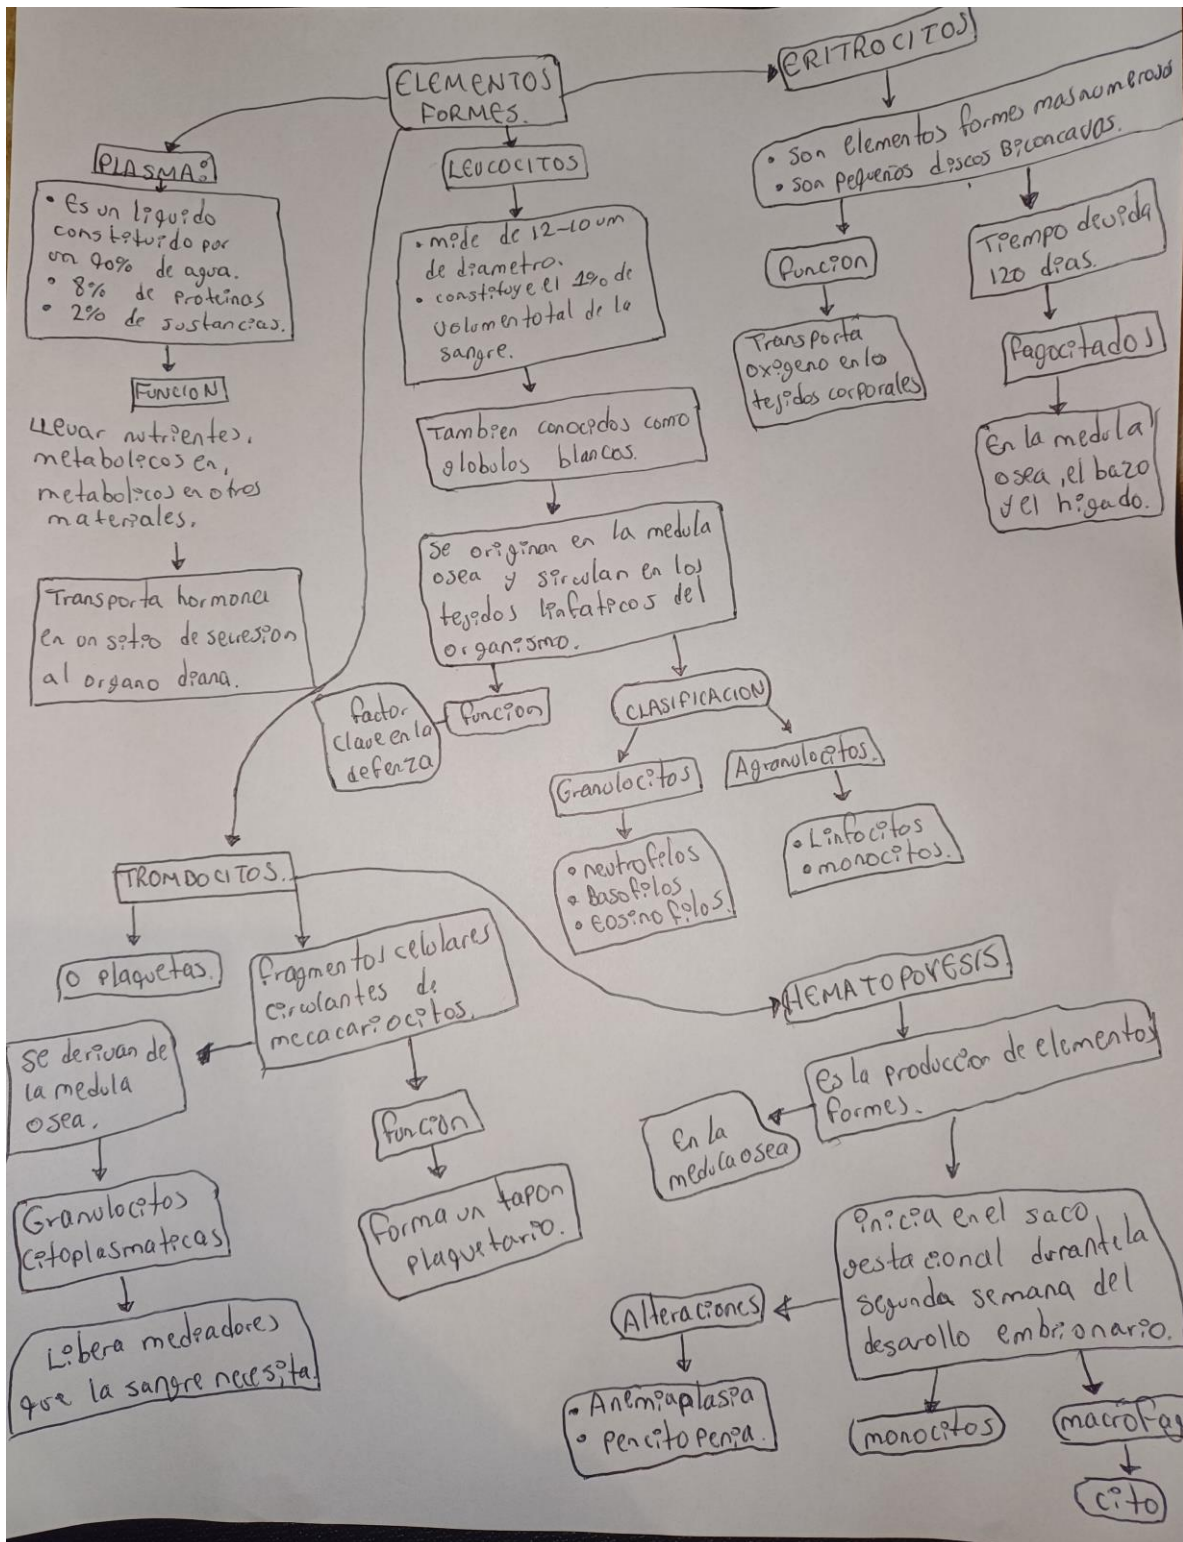 ELEMENTOS
FORMES.
PLASMA:
• Es un liquido
constituido por
un 90% de agua.
• 8% de proteinas
• 2% de sustancias.
FUNCION
LLevar nutrientes,
metabolicos en,
metabolicos en otros
materiales.
Transporta hormona
en un sitio de secresion
al organo diana.
LEUCOCITOS
• mide de 12-10 um
de diametro.
• constituye el 1% de
volumen total de la
sangre.
Tambien conocidos como
globulos blancos.
Se originan en la medula
osea y sirculan en los
tejidos linfaticos del
organismo.
funcion
factor
clave en la
defenza
CLASIFICACION
Granulocitos
• neutrofilos
• Basofilos
• Eosinofilos.
Agranulocitos.
• Linfocitos
• monocitos.
ERITROCITOS
• son elementos formes mas numerosos
• son pequeños discos Biconcavos.
funcion
Transporta
oxigeno en los
tejidos corporales
Tiempo de vida
120 dias.
fagocitados
En la medula
osea, el bazo
y el higado.
TROMDOCITOS.
O plaquetas.
fragmentos celulares
circulantes de
mecacariocitos.
se derivan de
la medula
osea.
Granulocitos
citoplasmaticas
Libera mediadores
que la sangre necesita.
función
forma un tapon
plaquetario.
HEMATOPOYESIS.
es la produccion de elementos
formes.
En la
medula osea
inicia en el saco
gestacional durante la
segunda semana del
desarollo embrionario.
Alteraciones
• Anemiaplasia
• pencitopenia.
monocitos
macrofag
cito